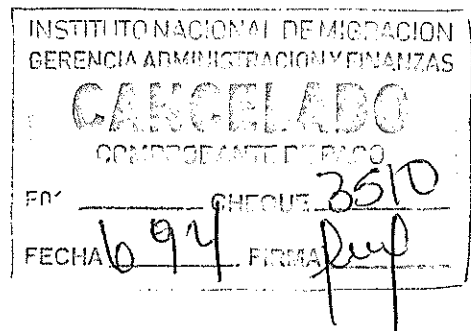 INSTITUTO NACIONAL DE MIGRACION
GERENCIA ADMINISTRACION Y FINANZAS
CANCELADO
COMPROBANTE DE PAGO
CHEQUE 3510
FECHA 6 94 FIRMA